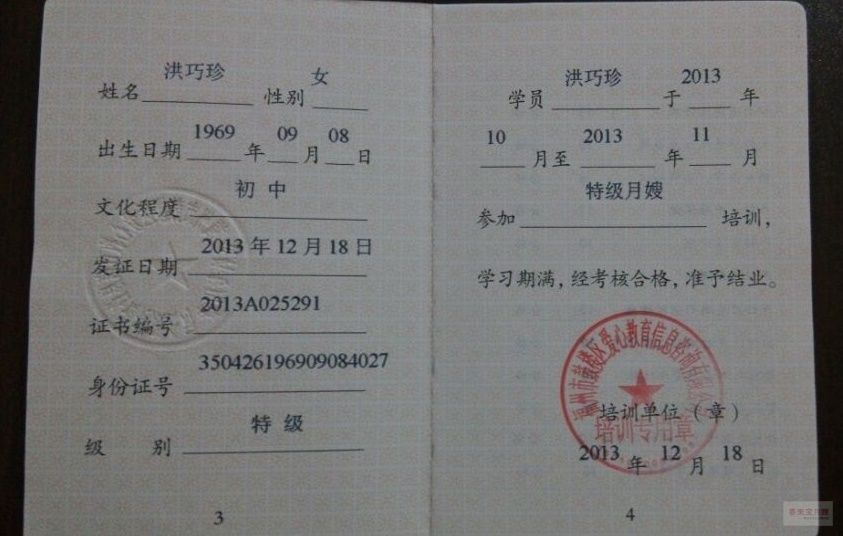 姓名 洪巧珍 性别 女
出生日期 1969 年 09 月 08 日
文化程度 初中
发证日期 2013年12月18日
证书编号 2013A025291
身份证号 350426196909084027
级别 特级
3
学员 洪巧珍 于 2013 年
10 月至 2013 年 11 月
参加 特级月嫂 培训，
学习期满，经考核合格，准予结业。
福州市鼓楼区爱心教育信息咨询有限公司
培训单位（章）
培训专用章
2013 年 12 月 18 日
4